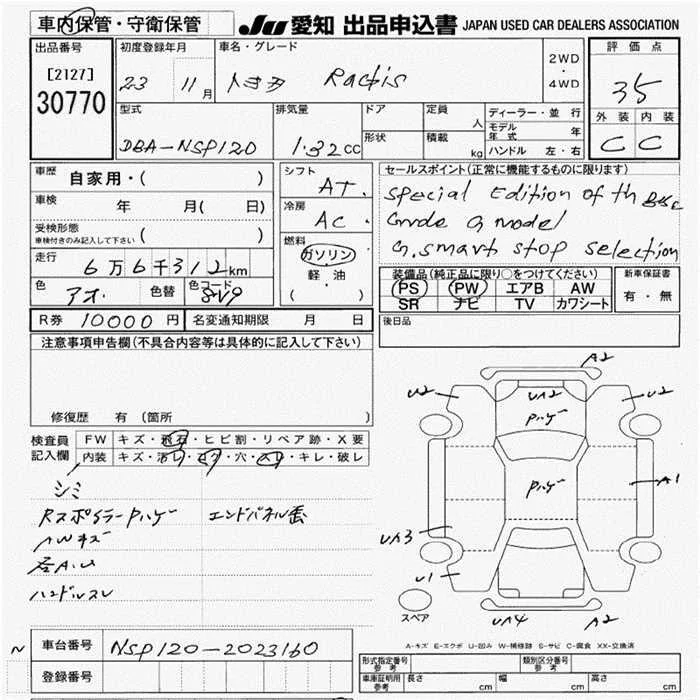 車内保管・守衛保管
JU 愛知 出品申込書 JAPAN USED CAR DEALERS ASSOCIATION
出品番号
[2127]
30770
初度登録年月
23 11月
車名・グレード
トヨタ Ractis
2WD
・
4WD
評価点
35
外装 内装
C C
型式
DBA-NSP120
排気量
1.32CC
ドア
形状
定員
人
積載
kg
ディーラー・並行
モデル年式 年
ハンドル 左・右
車歴 自家用・( )
車検 年 月( 日)
受検形態
車検付きのみ記入して下さい ( )
走行 6万6千312km
色 アオ 色替 色コード 8V9
シフト AT.
冷房 AC.
燃料
ガソリン
軽・油
( )
セールスポイント(正常に機能するものに限ります)
Special Edition of th Base
Grade G model
G.smart stop selection
装備品(純正品に限り○をつけてください)
PS PW エアB AW
SR ナビ TV カワシート
新車保証書
有・無
R券 10000円 名変通知期限 月 日
後日品
注意事項申告欄(不具合内容等は具体的に記入して下さい)
修復歴 有(箇所
検査員
記入欄
FW キズ・飛石・ヒビ割・リペア跡・X要
内装 キズ・汚レ・コゲ・穴・スレ・キレ・破レ
シミ
Rスポイラーハゲ エンドパネル歪
AWキズ
ハンドルスレ
A2
U2 UA2 U2
ハゲ
ハゲ
A1
UA3
U1
UA4 A2
スペア
A-キズ E-エクボ U-凹み W-補修跡 S-サビ C-腐食 XX-交換済
車台番号 NSP120-2023160
登録番号
型式指定番号 参考
類別区分番号 参考
車庫証明用 参考 長さ cm 幅 cm 高さ cm